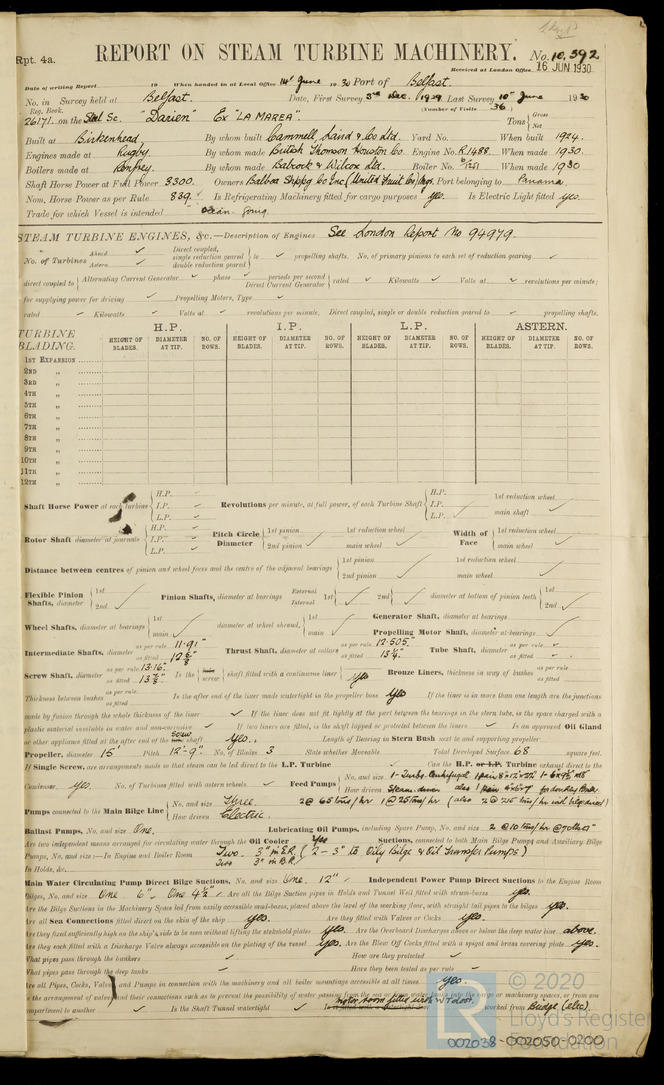 Rpt. 4a.
REPORT ON STEAM TURBINE MACHINERY. No. 10,392
Received at London Office 16 JUN 1930
Date of writing Report 19 When handed in at Local Office 14th June 1930 Port of Belfast.
No. in Survey held at Belfast. Date, First Survey 3rd Dec. 1929 Last Survey 10th June 1930
Reg. Book. (Number of Visits 36.)
26171. on the Steel Sc. "Darien" Ex "LA MAREA". Tons { Gross Net
Built at Birkenhead, By whom built Cammell, Laird & Co Ltd. Yard No. When built 1924.
Engines made at Rugby. By whom made British Thomson Houston Co Engine No. R.1488. When made 1930.
Boilers made at Renfrew. By whom made Babcock & Wilcox Ltd. Boiler No. When made 1930
Shaft Horse Power at Full Power 3300. Owners Balboa Shppg Co Inc (United Fruit Co) Mgrs. Port belonging to Panama
Nom. Horse Power as per Rule 839. Is Refrigerating Machinery fitted for cargo purposes yes. Is Electric Light fitted yes.
Trade for which Vessel is intended Ocean going
STEAM TURBINE ENGINES, &c.—Description of Engines See London Report No 94979.
No. of Turbines Ahead Astern Direct coupled, single reduction geared double reduction geared } to propelling shafts. No. of primary pinions to each set of reduction gearing
direct coupled to { Alternating Current Generator phase periods per second Direct Current Generator } rated Kilowatts Volts at revolutions per minute;
for supplying power for driving Propelling Motors, Type
rated Kilowatts Volts at revolutions per minute. Direct coupled, single or double reduction geared to propelling shafts.
TURBINE BLADING. H.P. I.P. L.P. ASTERN.
HEIGHT OF BLADES. DIAMETER AT TIP. NO. OF ROWS. HEIGHT OF BLADES. DIAMETER AT TIP. NO. OF ROWS. HEIGHT OF BLADES. DIAMETER AT TIP. NO. OF ROWS. HEIGHT OF BLADES. DIAMETER AT TIP. NO. OF ROWS.
1ST EXPANSION
2ND "
3RD "
4TH "
5TH "
6TH "
7TH "
8TH "
9TH "
10TH "
11TH "
12TH "
Shaft Horse Power at each turbine { H.P. I.P. L.P. Revolutions per minute, at full power, of each Turbine Shaft { H.P. I.P. L.P. 1st reduction wheel main shaft
Rotor Shaft diameter at journals { H.P. I.P. L.P. Pitch Circle Diameter { 1st pinion 2nd pinion 1st reduction wheel main wheel Width of Face { 1st reduction wheel main wheel
Distance between centres of pinion and wheel faces and the centre of the adjacent bearings { 1st pinion 2nd pinion 1st reduction wheel main wheel
Flexible Pinion Shafts, diameter { 1st 2nd Pinion Shafts, diameter at bearings External Internal 1st 2nd diameter at bottom of pinion teeth { 1st 2nd
Wheel Shafts, diameter at bearings { 1st main diameter at wheel shroud, { 1st main Generator Shaft, diameter at bearings
Propelling Motor Shaft, diameter at bearings
Intermediate Shafts, diameter as per rule 11.91" as fitted 12 5/8" Thrust Shaft, diameter at collars as per rule 12.505" as fitted 13 1/4" Tube Shaft, diameter as per rule as fitted
Screw Shaft, diameter as per rule 13.16" as fitted 13 7/8" Is the { tube screw } shaft fitted with a continuous liner { yes Bronze Liners, thickness in way of bushes as per rule as fitted
Thickness between bushes as per rule as fitted Is the after end of the liner made watertight in the propeller boss yes If the liner is in more than one length are the junctions
made by fusion through the whole thickness of the liner If the liner does not fit tightly at the part between the bearings in the stern tube, is the space charged with a
plastic material insoluble in water and non-corrosive If two liners are fitted, is the shaft lapped or protected between the liners Is an approved Oil Gland
or other appliance fitted at the after end of the tube screw shaft Yes. Length of Bearing in Stern Bush next to and supporting propeller
Propeller, diameter 15' Pitch 12'-9" No. of Blades 3 State whether Moveable Total Developed Surface 68 square feet.
If Single Screw, are arrangements made so that steam can be led direct to the L.P. Turbine Can the H.P. or I.P. Turbine exhaust direct to the
Condenser, yes. No. of Turbines fitted with astern wheels Feed Pumps { No. and size How driven Steam driven
Pumps connected to the Main Bilge Line { No. and size Three. 2 @ 65 tons/hr 1 @ 25 tons/hr
How driven Electric.
Ballast Pumps, No. and size One. Lubricating Oil Pumps, including Spare Pump, No. and size 2 @ 10 tons/hr
Are two independent means arranged for circulating water through the Oil Cooler Yes Suctions, connected to both Main Bilge Pumps and Auxiliary Bilge
Pumps, No. and size:—In Engine and Boiler Room Two 3" in E.R. Two 3" in B.R. (2 - 3" to Oily Bilge & Oil Transfer Pumps)
In Holds, &c.
Main Water Circulating Pump Direct Bilge Suctions, No. and size One. 12" Independent Power Pump Direct Suctions to the Engine Room
Bilges, No. and size One 6", One 4½" Are all the Bilge Suction pipes in Holds and Tunnel Well fitted with strum-boxes yes.
Are the Bilge Suctions in the Machinery Space led from easily accessible mud-boxes, placed above the level of the working floor, with straight tail pipes to the bilges yes.
Are all Sea Connections fitted direct on the skin of the ship yes. Are they fitted with Valves or Cocks yes.
Are they fixed sufficiently high on the ship's side to be seen without lifting the stokehold plates yes. Are the Overboard Discharges above or below the deep water line above.
Are they each fitted with a Discharge Valve always accessible on the plating of the vessel yes. Are the Blow Off Cocks fitted with a spigot and brass covering plate yes.
What pipes pass through the bunkers How are they protected
What pipes pass through the deep tanks Have they been tested as per rule
Are all Pipes, Cocks, Valves, and Pumps in connection with the machinery and all boiler mountings accessible at all times. yes.
Is the arrangement of valves and their connections such as to prevent the possibility of water passing from the sea or from water ballast tanks into the cargo or machinery spaces, or from one
compartment to another Is the Shaft Tunnel watertight motor room fitted with W.T. door. worked from Bridge (elec).
© 2020
Lloyd's Register
Foundation
002038-002050-0200